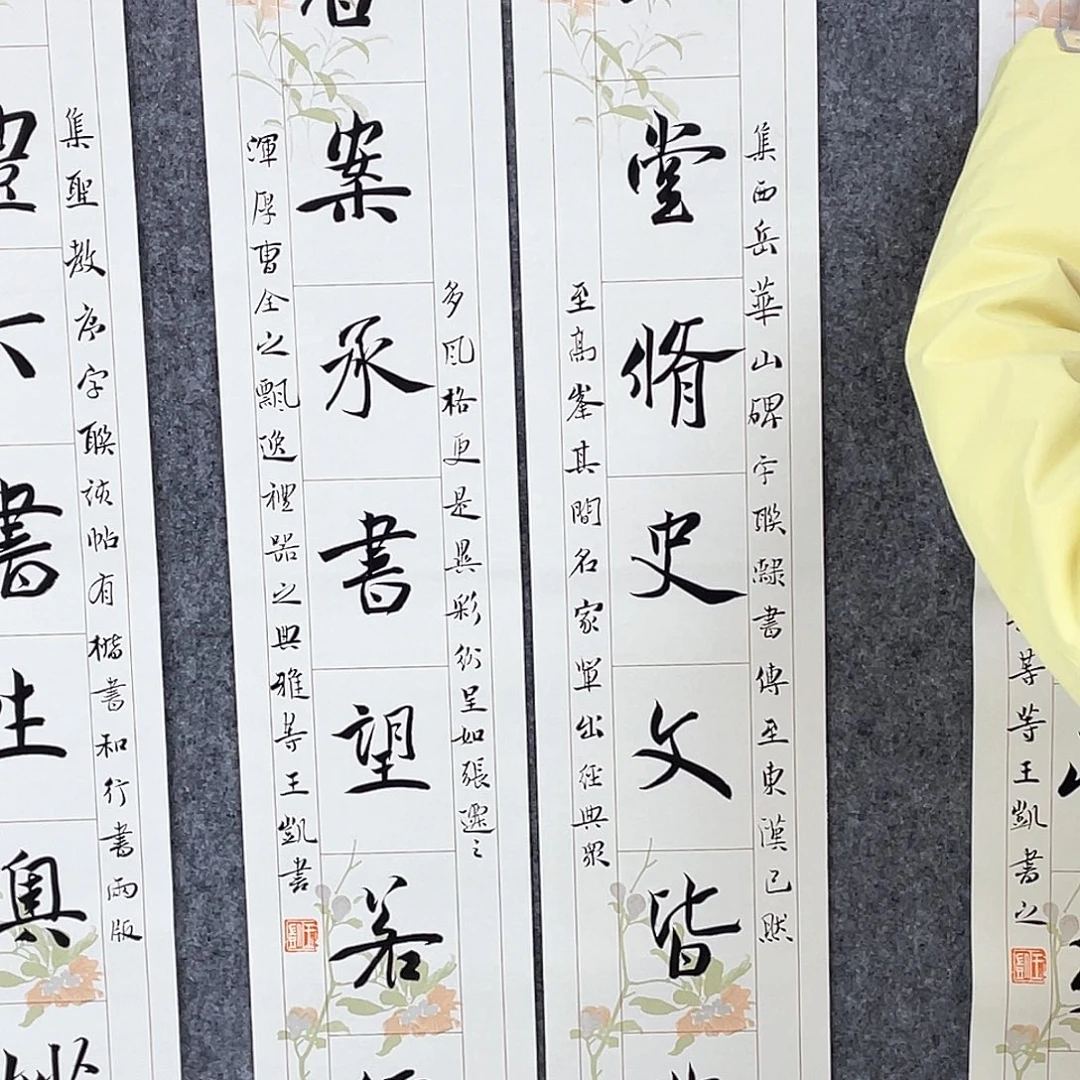 等等王凱書之
集西岳華山碑字联隸書傳至東漢已然
堂脩史文皆
至高峯其間名家輩出經典眾
多風格更是異彩紛呈如張遷之
案承書望若
渾厚曹全之飄逸禮器之典雅等王凱書
集聖教序字聯該帖有楷書和行書兩版
書性